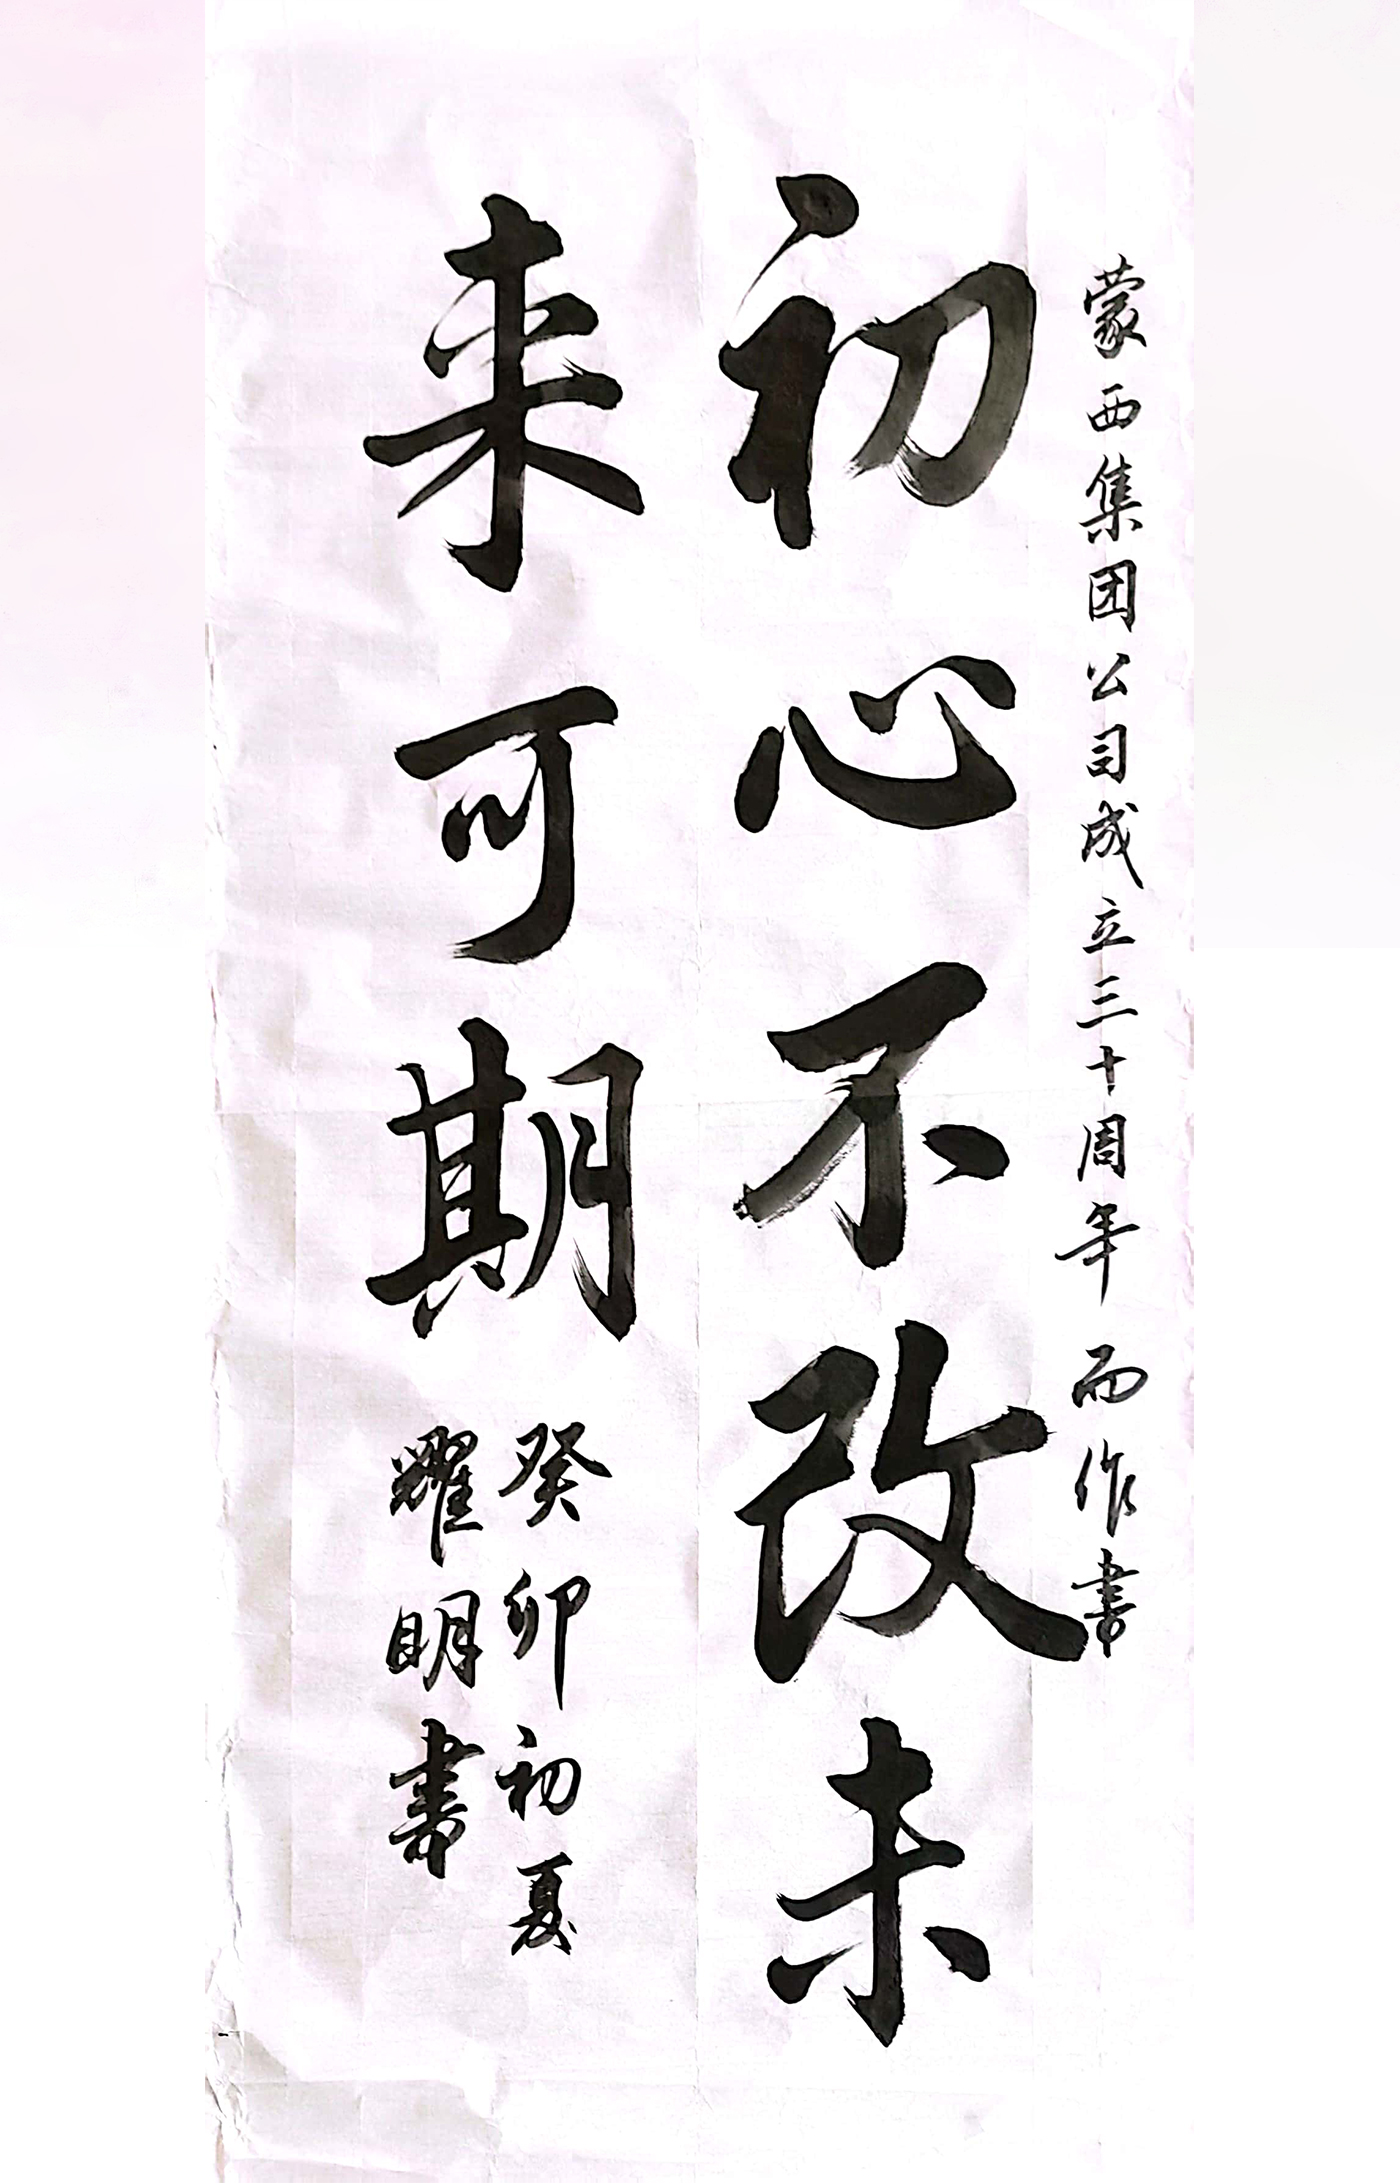 蒙西集团公司成立三十周年而作書
初心不改未
来可期
癸卯初夏
耀明書